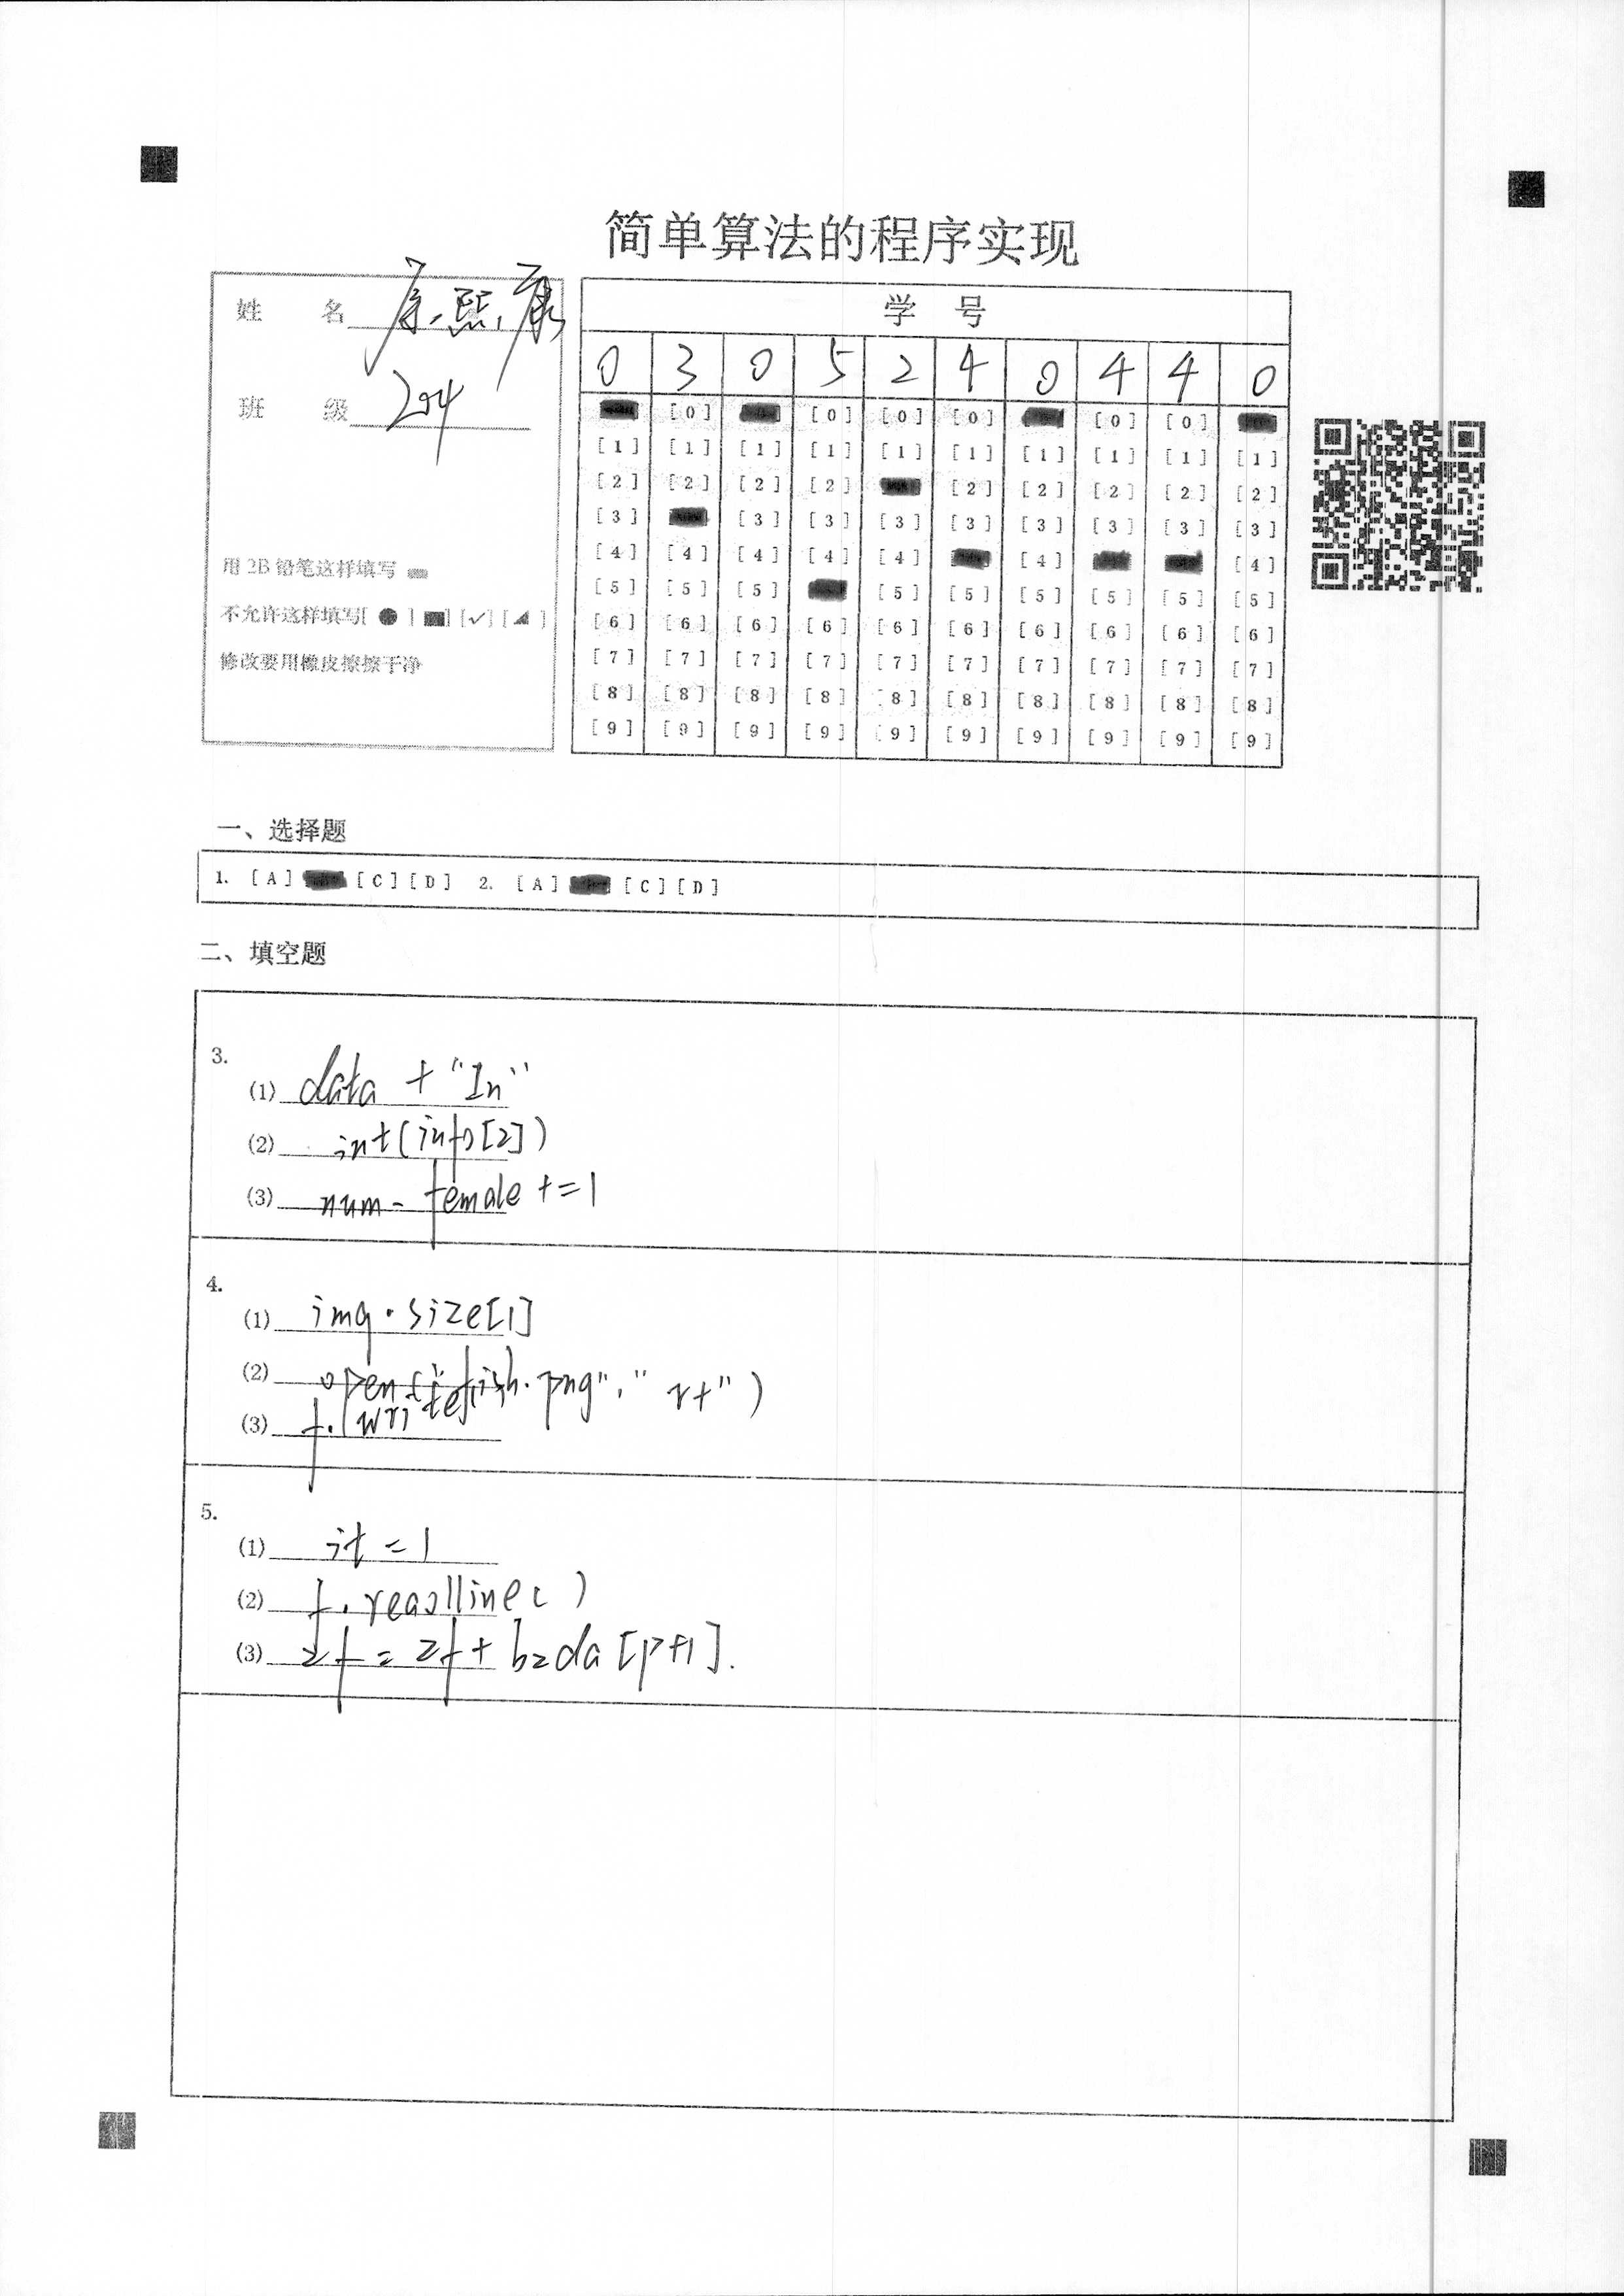 简单算法的程序实现
姓 名 熙康
班 级 204
用 2B 铅笔这样填写
不允许这样填写[ ● ] [■] [✓] [◢ ]
修改要用橡皮擦擦干净
学 号
0 3 0 5 2 4 0 4 4 0
[0] [0] [0] [0] [0] [0]
[1] [1] [1] [1] [1] [1] [1] [1] [1] [1]
[2] [2] [2] [2] [2] [2] [2] [2] [2]
[3] [3] [3] [3] [3] [3] [3] [3] [3]
[4] [4] [4] [4] [4] [4] [4]
[5] [5] [5] [5] [5] [5] [5] [5] [5]
[6] [6] [6] [6] [6] [6] [6] [6] [6] [6]
[7] [7] [7] [7] [7] [7] [7] [7] [7] [7]
[8] [8] [8] [8] [8] [8] [8] [8] [8] [8]
[9] [9] [9] [9] [9] [9] [9] [9] [9] [9]
一、选择题
1. [A] [C] [D] 2. [A] [C] [D]
二、填空题
3.
(1) data + "In"
(2) int(info[2])
(3) num- female +=1
4.
(1) img.size[1]
(2) open("fish.png","r+")
(3) f.(write
5.
(1) it =1
(2) f.readline()
(3) zf = zf + bzda [p+1].